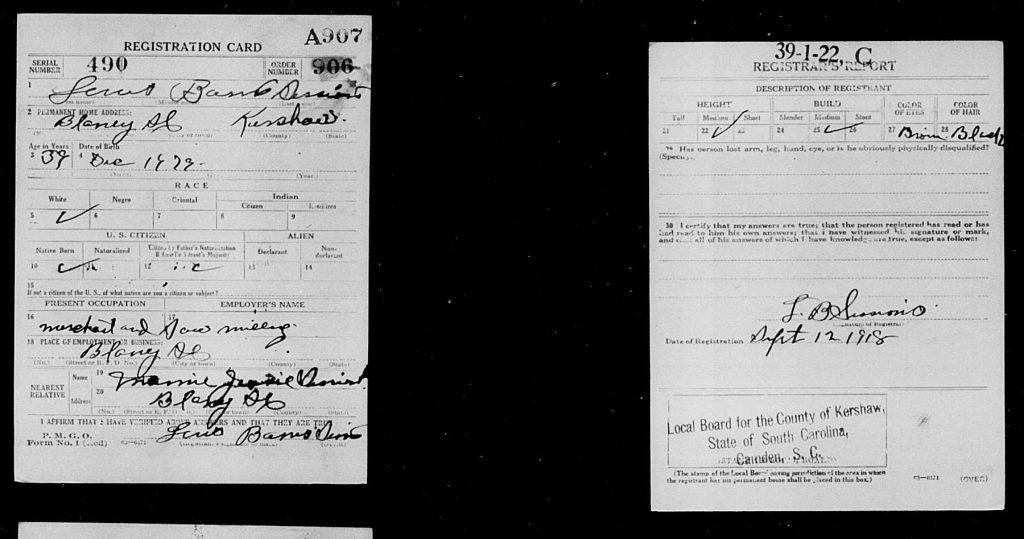 REGISTRATION CARD
A907
SERIAL NUMBER 490
ORDER NUMBER 906
1
2 PERMANENT HOME ADDRESS:
Blaney SC Kershaw.
(County) (State)
Age in Years
Date of Birth
3 39 4 Dec 1879.
(Year)
RACE
White Negro Oriental Indian
Citizen
5 ✓ 6 7 8 9
U. S. CITIZEN ALIEN
Native Born Naturalized Citizen by Father's Naturalization Declarant Non-declarant
10 ✓ 12 13 14
15
If not a citizen of the U. S., of what nation are you a citizen or subject?
PRESENT OCCUPATION EMPLOYER'S NAME
16 17
merchant and Saw milling.
18 PLACE OF EMPLOYMENT OR BUSINESS:
Blaney SC
(No.) (Street or R. F. D. No.) (City or town) (County) (State)
NEAREST RELATIVE
Name 19 Mamie
Address 20 Blaney SC
(County) (State)
I AFFIRM THAT I HAVE VERIFIED ABOVE ANSWERS AND THAT THEY ARE TRUE
P. M. G. O.
Form No. 1 (Red)
39-1-22, C
REGISTRAR'S REPORT
DESCRIPTION OF REGISTRANT
HEIGHT BUILD COLOR OF EYES COLOR OF HAIR
Tall Medium Short Slender Medium Stout
21 22 ✓ 23 24 25 ✓ 26 27 Brown 28 Black
29 Has person lost arm, leg, hand, eye, or is he obviously physically disqualified?
(Specify.)
30 I certify that my answers are true; that the person registered has read or has
had read to him his own answers; that I have witnessed his signature or mark,
and that all of his answers of which I have knowledge are true, except as follows:
L. B. Sessions
(Signature of Registrar)
Date of Registration Sept 12 1918
Local Board for the County of Kershaw,
State of South Carolina,
Camden, S. C.
(The stamp of the Local Board having jurisdiction of the area in which
the registrant has his permanent home shall be placed in this box.)
03—6171 (OVER)